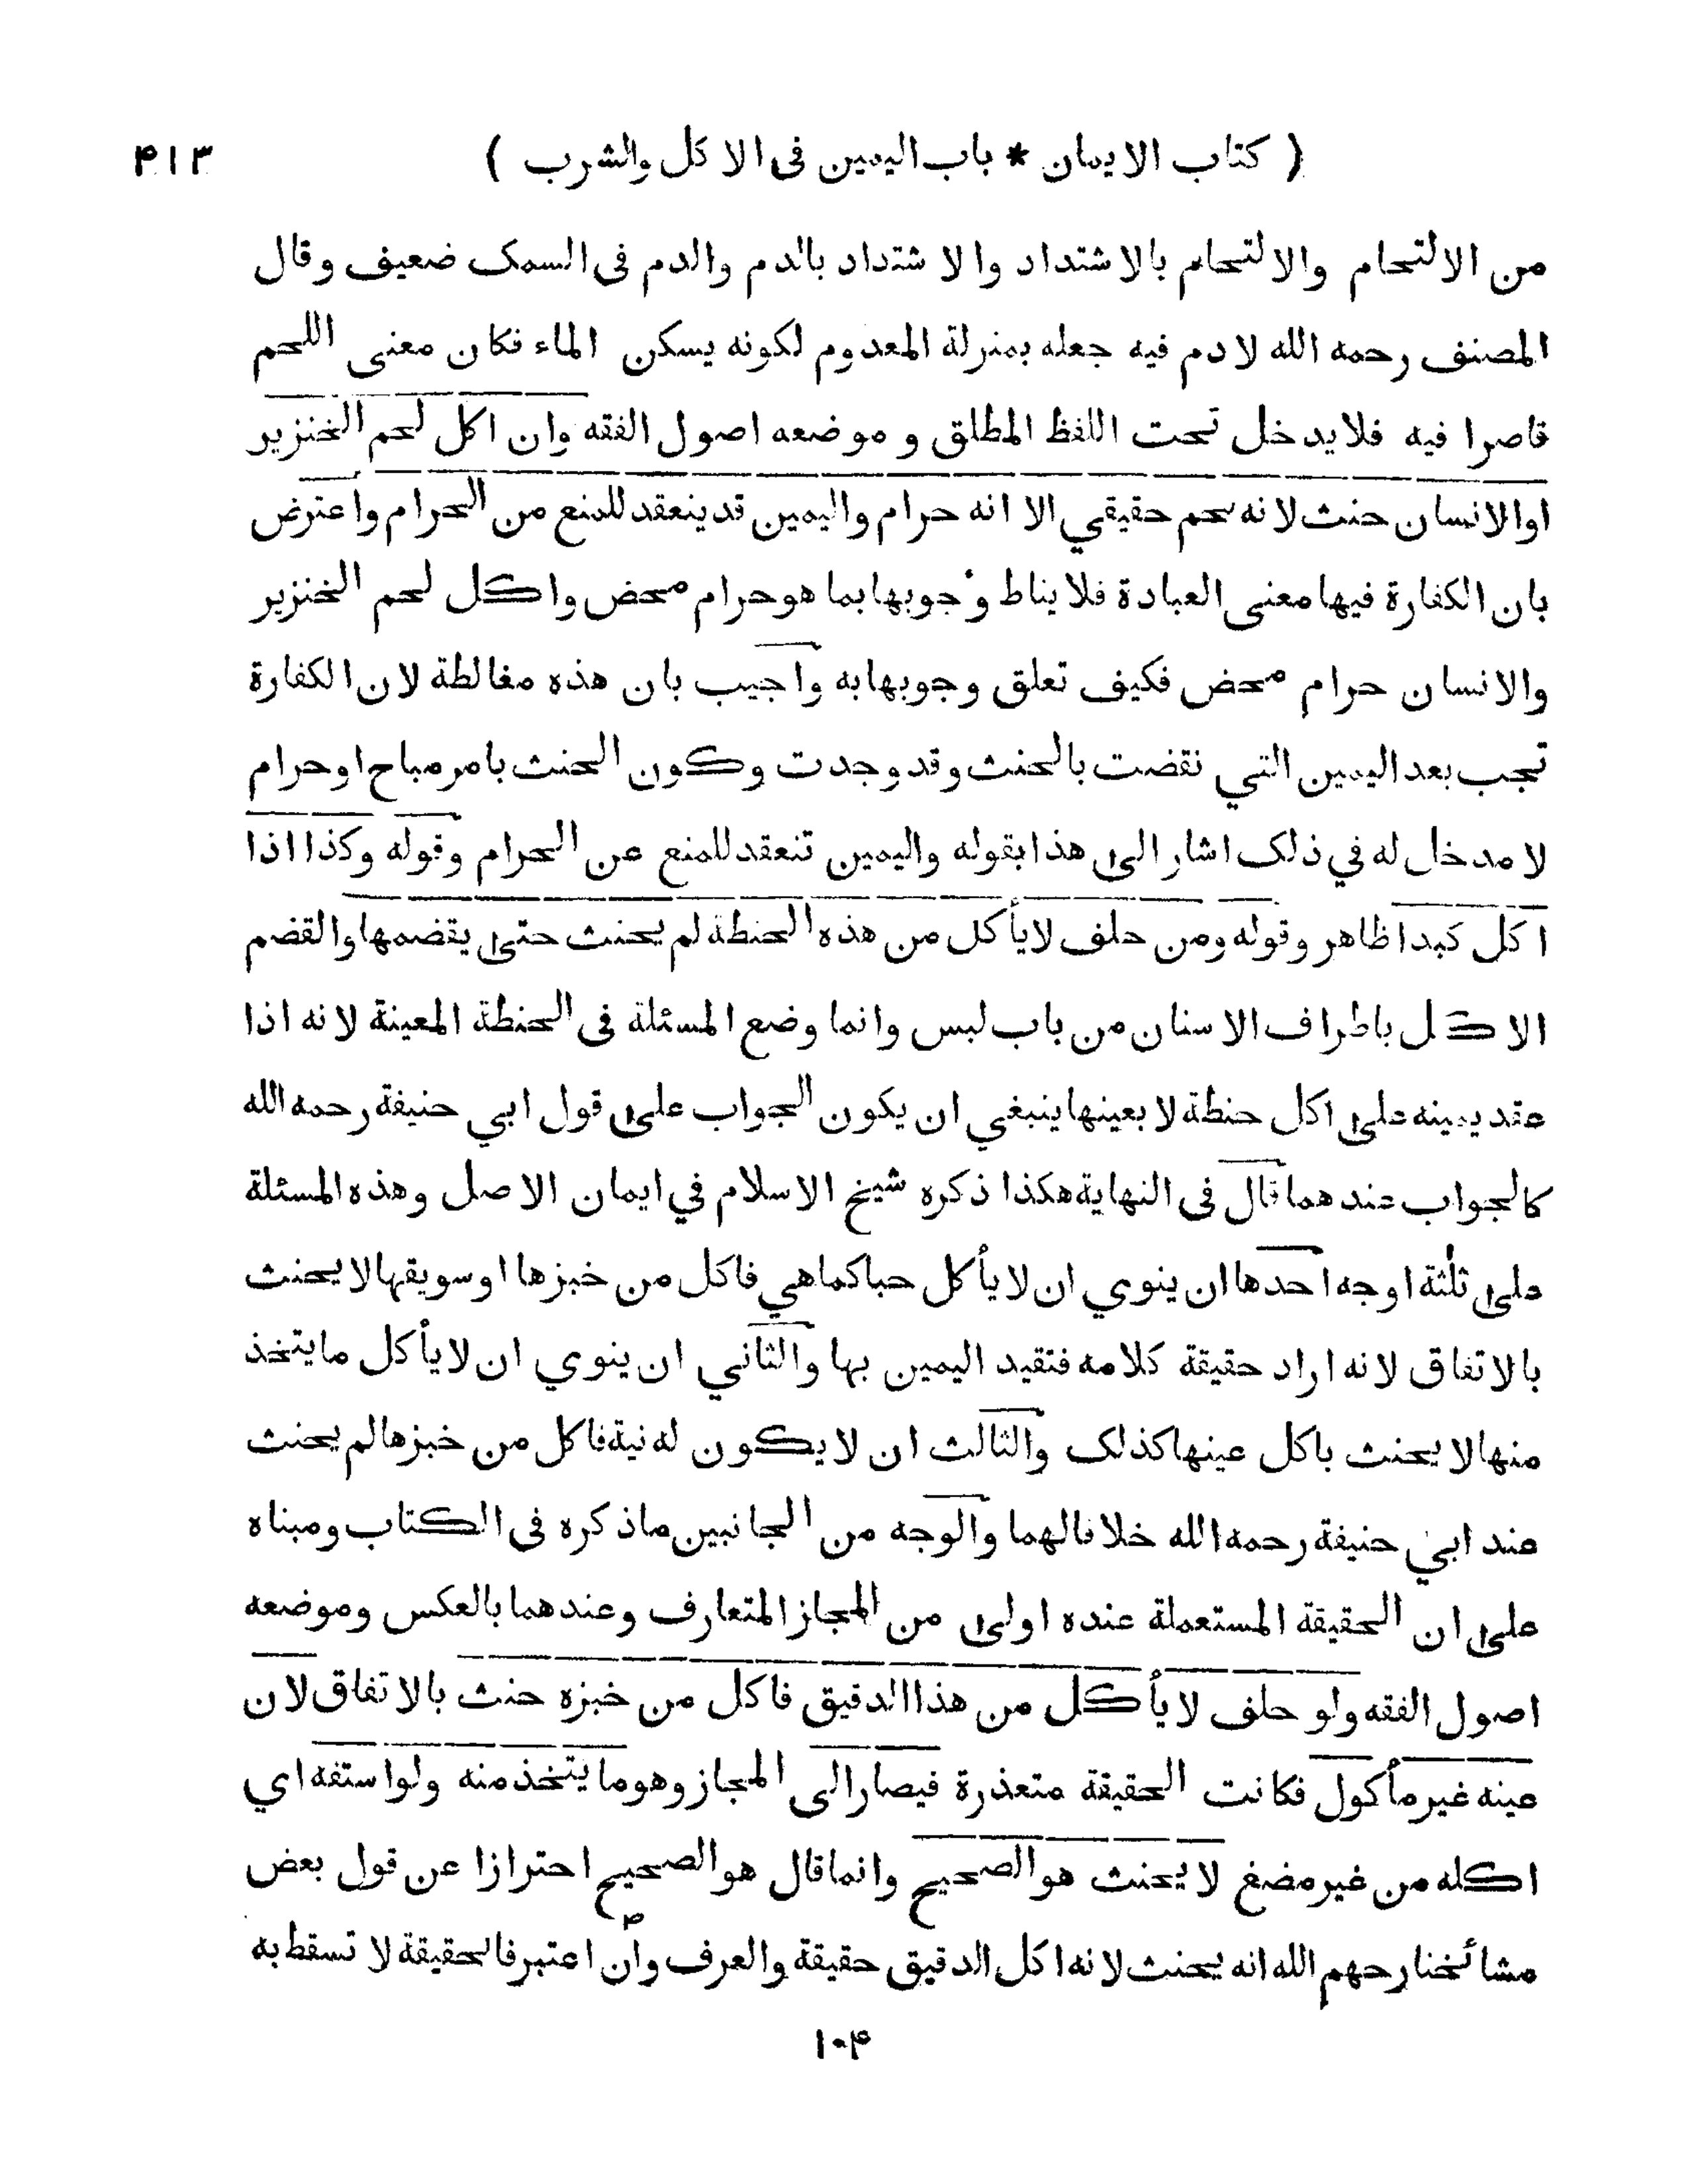 ( كتاب الايمان * باب اليمين فى الاكل والشرب ) ۴۱۳
من الالتحام والالتحام بالاشتداد والاشتداد بالدم والدم فى السمک ضعيف وقال
المصنف رحمه الله لادم فيه جعله بمنزلة المعدوم لكونه يسكن الماء فكان معنى اللحم
قاصرا فيه فلايدخل تحت اللفظ المطلق و موضعه اصول الفقه وان اكل لحم الخنزير
اوالانسان حنث لانه لحم حقيقي الا انه حرام واليمين قدينعقد للمنع من الحرام واعترض
بان الكفارة فيها معنى العبادة فلايناط وجوبها بما هو حرام محض واكل لحم الخنزير
والانسان حرام محض فكيف تعلق وجوبها به واجيب بان هذه مغالطة لان الكفارة
تجب بعد اليمين التي نقضت بالحنث وقد وجدت وكون الحنث بامر مباح او حرام
لامدخل له في ذلک اشار الى هذا بقوله واليمين تنعقد للمنع عن الحرام وقوله وكذا اذا
اكل كبدا ظاهر وقوله ومن حلف لايأكل من هذه الحنطة لم يحنث حتى يقضمها والقضم
الاكل باطراف الاسنان من باب لبس وانما وضع المسئلة فى الحنطة المعينة لانه اذا
عقد يمينه على اكل حنطة لابعينها ينبغي ان يكون الجواب على قول ابي حنيفة رحمه الله
كالجواب عندهما قال فى النهاية هكذا ذكره شيخ الاسلام في ايمان الاصل وهذه المسئلة
على ثلثة اوجه احدها ان ينوي ان لايأكل حبا كماهي فاكل من خبزها اوسويقها لايحنث
بالاتفاق لانه اراد حقيقة كلامه فتقيد اليمين بها والثاني ان ينوي ان لايأكل مايتخذ
منها لايحنث باكل عينها كذلک والثالث ان لايكون له نية فاكل من خبزها لم يحنث
عند ابي حنيفة رحمه الله خلافا لهما والوجه من الجانبين ماذكره فى الكتاب ومبناه
على ان الحقيقة المستعملة عنده اولى من المجاز المتعارف وعندهما بالعكس وموضعه
اصول الفقه ولو حلف لايأكل من هذا الدقيق فاكل من خبزه حنث بالاتفاق لان
عينه غير مأكول فكانت الحقيقة متعذرة فيصار الى المجاز وهو ما يتخذ منه ولواستفه اي
اكله من غير مضغ لايحنث هو الصحيح وانما قال هو الصحيح احترازا عن قول بعض
مشائخنا رحمهم الله انه يحنث لانه اكل الدقيق حقيقة والعرف وان اعتبر فالحقيقة لا تسقط به
۱۰۴